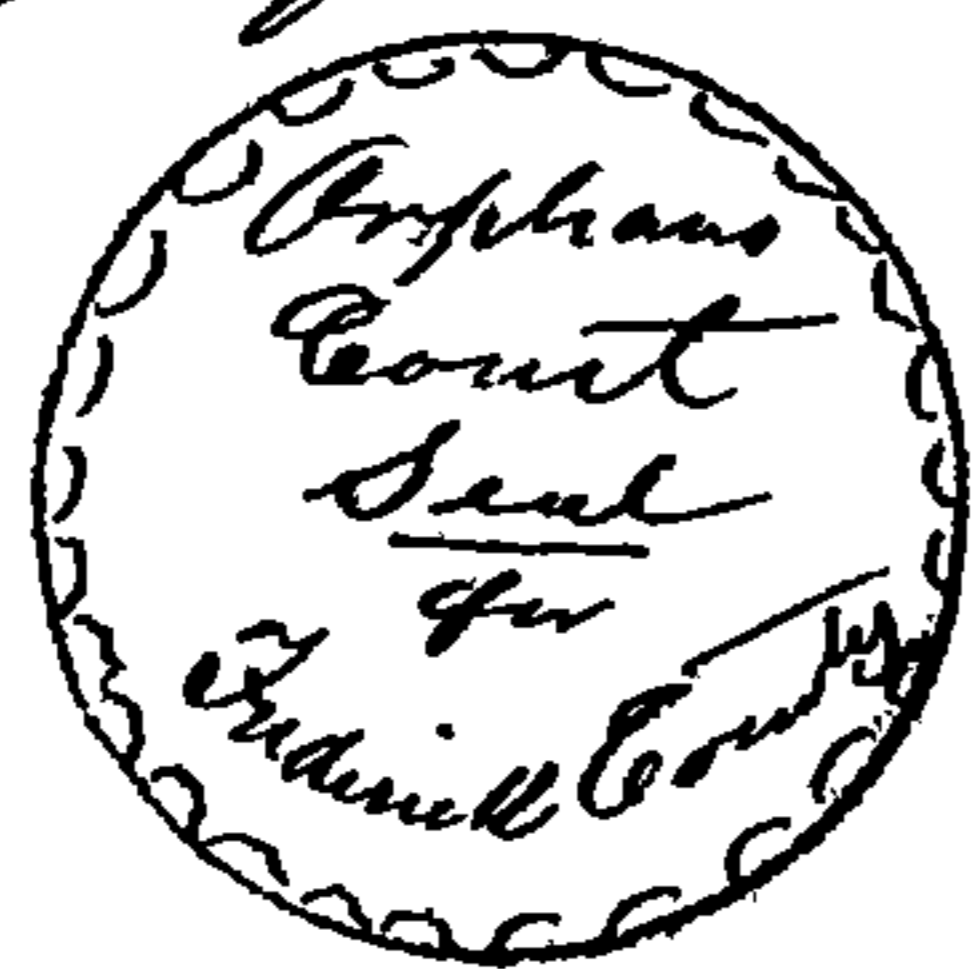 Orphans
Court
Seal
for
Frederick County